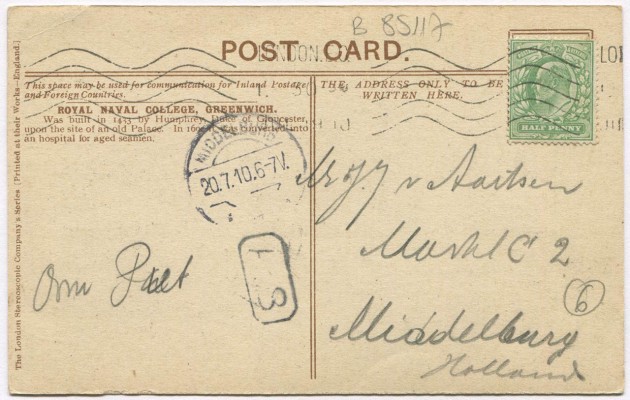 B 85117
POST CARD.
LONDON
This space may be used for communication for Inland Postage
and Foreign Countries.
THE ADDRESS ONLY TO BE
WRITTEN HERE.
HALF PENNY
ROYAL NAVAL COLLEGE, GREENWICH.
Was built in 1433 by Humphrey, Duke of Gloucester,
upon the site of an old Palace. In converted into
an hospital for aged seamen.
MIDDELBURG
20.7.10.6-7V.
1
3
v Aartsen
Markt C 2
Middelburg
Holland
6
The London Stereoscopic Company's Series [Printed at their Works—England.]